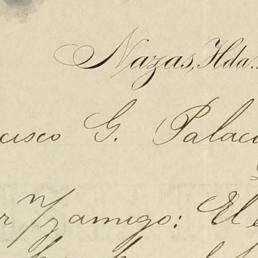 Nazas, Hda.
cisco G. Palac
r y amigo: El